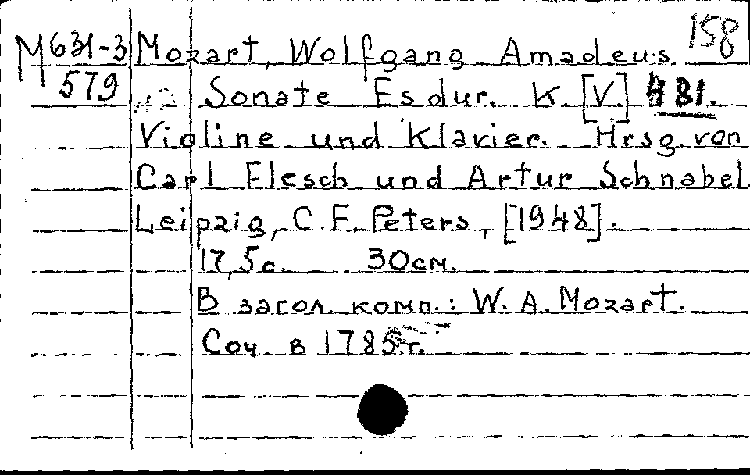 158
М 631-3
579
Mozart, Wolfgang Amadeus.
Sonate Es dur. K. [V.] 481.
Violine und Klavier. Hrsg. von
Carl Flesch und Artur Schnabel
Leipzig, C. F. Peters, [1948].
17, 5 с. 30 см.
В загол. комп.: W. A. Mozart.
Соч. в 1785 г.